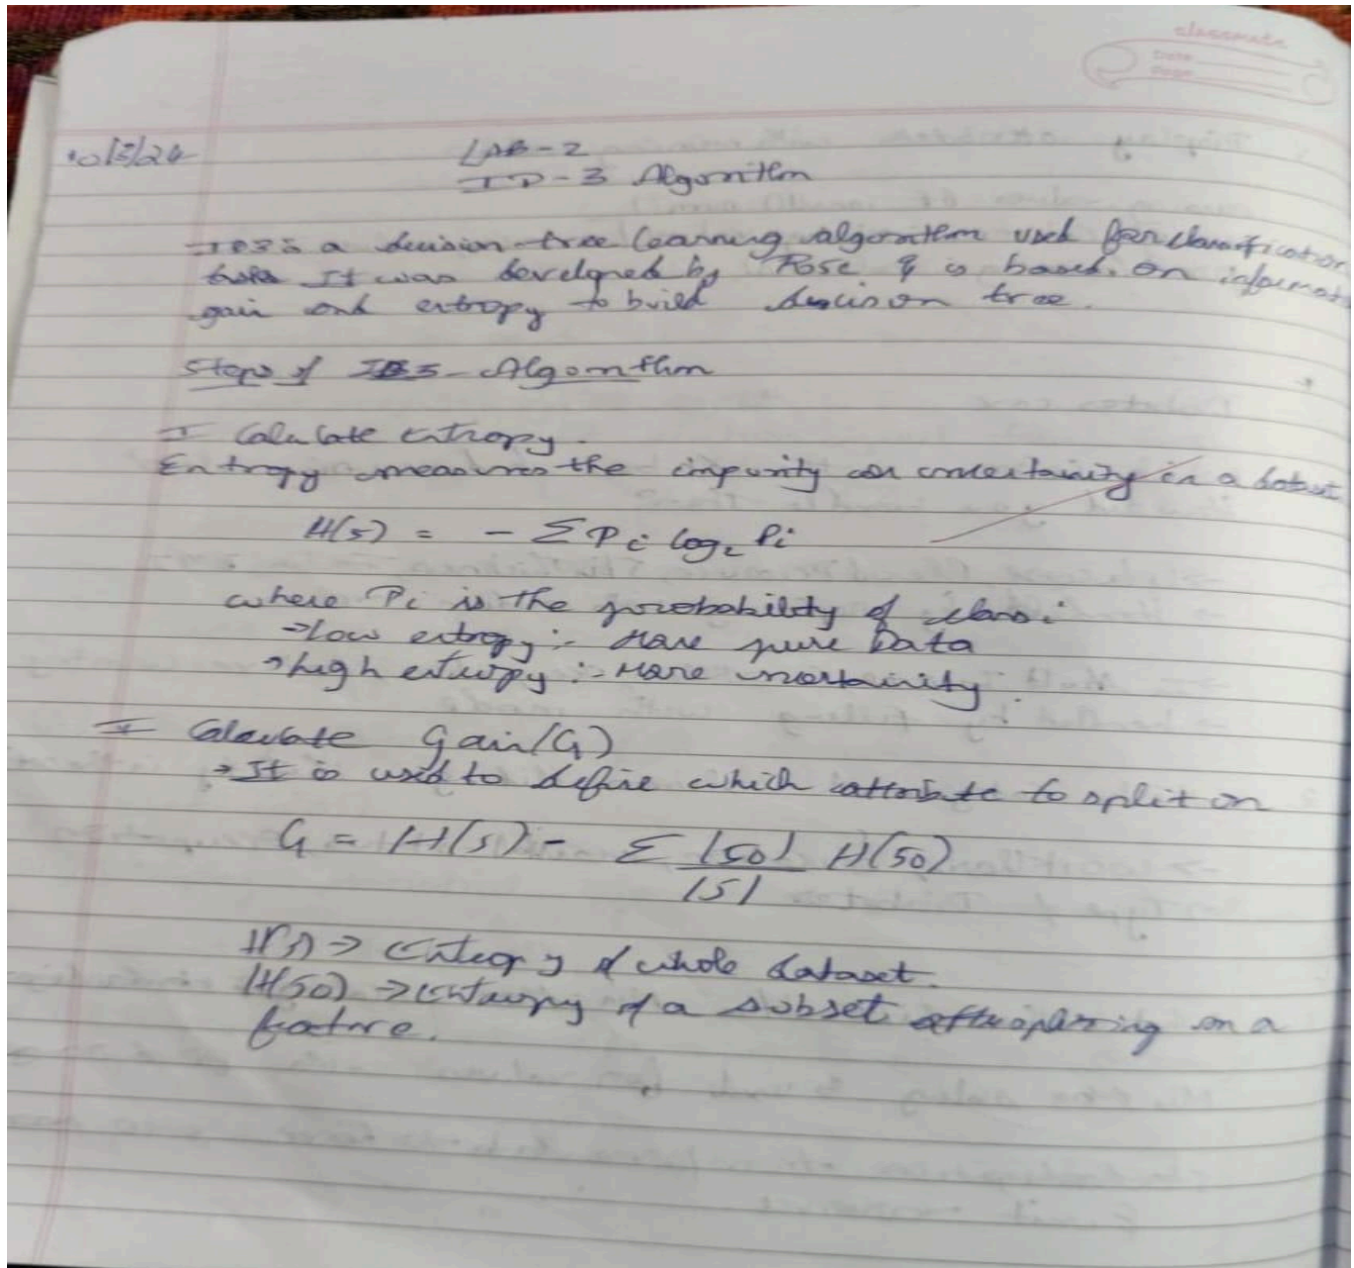 classmate
Date
Page
10/3/24
LAB-2
ID-3 Algorithm
ID3 is a decision tree learning algorithm used for classification
It was developed by Rose & is based on informat
gain and entropy to build decision tree.
Steps of ID3 Algorithm
I Calculate Entropy.
Entropy measures the impurity or uncertainity in a dataset
H(S) = - Σ Pi log₂ Pi
where Pi is the probability of class i
→low entropy:- More pure Data
→high entropy:- More uncertainity.
II Calculate Gain(G)
→It is used to define which attribute to split on
G = H(S) - Σ |S0| H(S0)
|S|
H(S) → Entropy of whole dataset.
H(S0) → Entropy of a subset after splitting on a
feature.